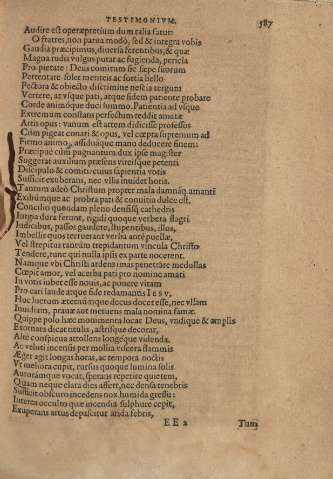 TESTIMONIVM. 587
Audire est operæpretium dum talia fatur:
O fratres, non parua modò, sed & integra vobis
Gaudia præcipimus, diuersa ferentibus, & quæ
Magna rudis vulgus putat ac fugienda, pericla
Pro pietate: Deus comitum sic sæpe suorum
Pertentare solet menteis ac fortia bello
Pectora & obiecto discrimine nescia tergum
Vertere, at vsque pati, atque fidem patiente probare
Corde animóque duci summo. Patientia ad vsque
Extremum constans perfectum reddit amatæ
Artis opus: vanum est artem didicisse professos
Cùm pigeat conari & opus, vel cœpta supremum ad
Firmo animo, assiduáque manu deducere finem:
Præcipuè cùm pugnantum dux ipse magister
Suggerat auxilium præsens vireísque petenti
Discipulo & comiti: cuius sapientia votis
Sufficit exuberans, nec vlli inuidet horis.
Tantum adeò Christum propter mala damnáq. amanti
Exiliúmque ac probra pati & conuitia dulce est.
Concilio quondam pleno densíssq cathedris
Iurgia dura ferunt, rigidi quoque verbera flagri
Iudicibus, passos gaudere, stupentibus, illus,
Imbelles quos terruerant verba antè puellæ,
Vel strepitus tantùm trepidantum vincula Christo
Tendere, tunc qui nulla ipsis ex parte nocerent.
Namque vbi Christi ardens imas penetrare medullas
Cœpit amor, vel acerba pati pro nomine amati
In votis iubet esse nouis, ac ponere vitam
Pro cari laude atque fide redamantis IESV,
Hoc lucrum æternúmque decus docet esse, nec vllam
Inuidiam, prauæ aut metuens mala nomina famæ.
Quippe polo hæc monumenta locat Deus, vndique & amplis
Exornata dicat titulis, astrísque decorat,
Altè conspicua attollens longéque videnda.
Ac veluti incensis per mollia viscera flammis
Æger agit longas horas, ac tempora noctis
Vt meliora cupit, rursus quoque lumina solis
Aurorámque vocat, sperans reperire quietem,
Quam neque clara dies affert, nec densa tenebris
Sufficit obscuro incedens nox humida gressu:
Interea occulto quæ incendia sulphure cepit,
Exuperans artus depascitur arida febris,
EE 2 Tum